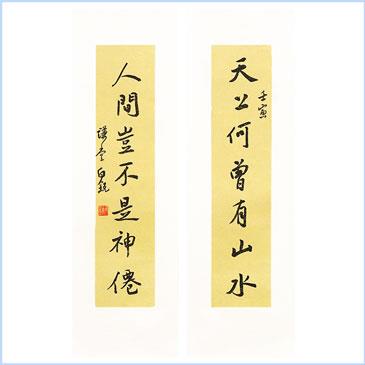 天上何曾有山水
壬寅
人間豈不是神僊